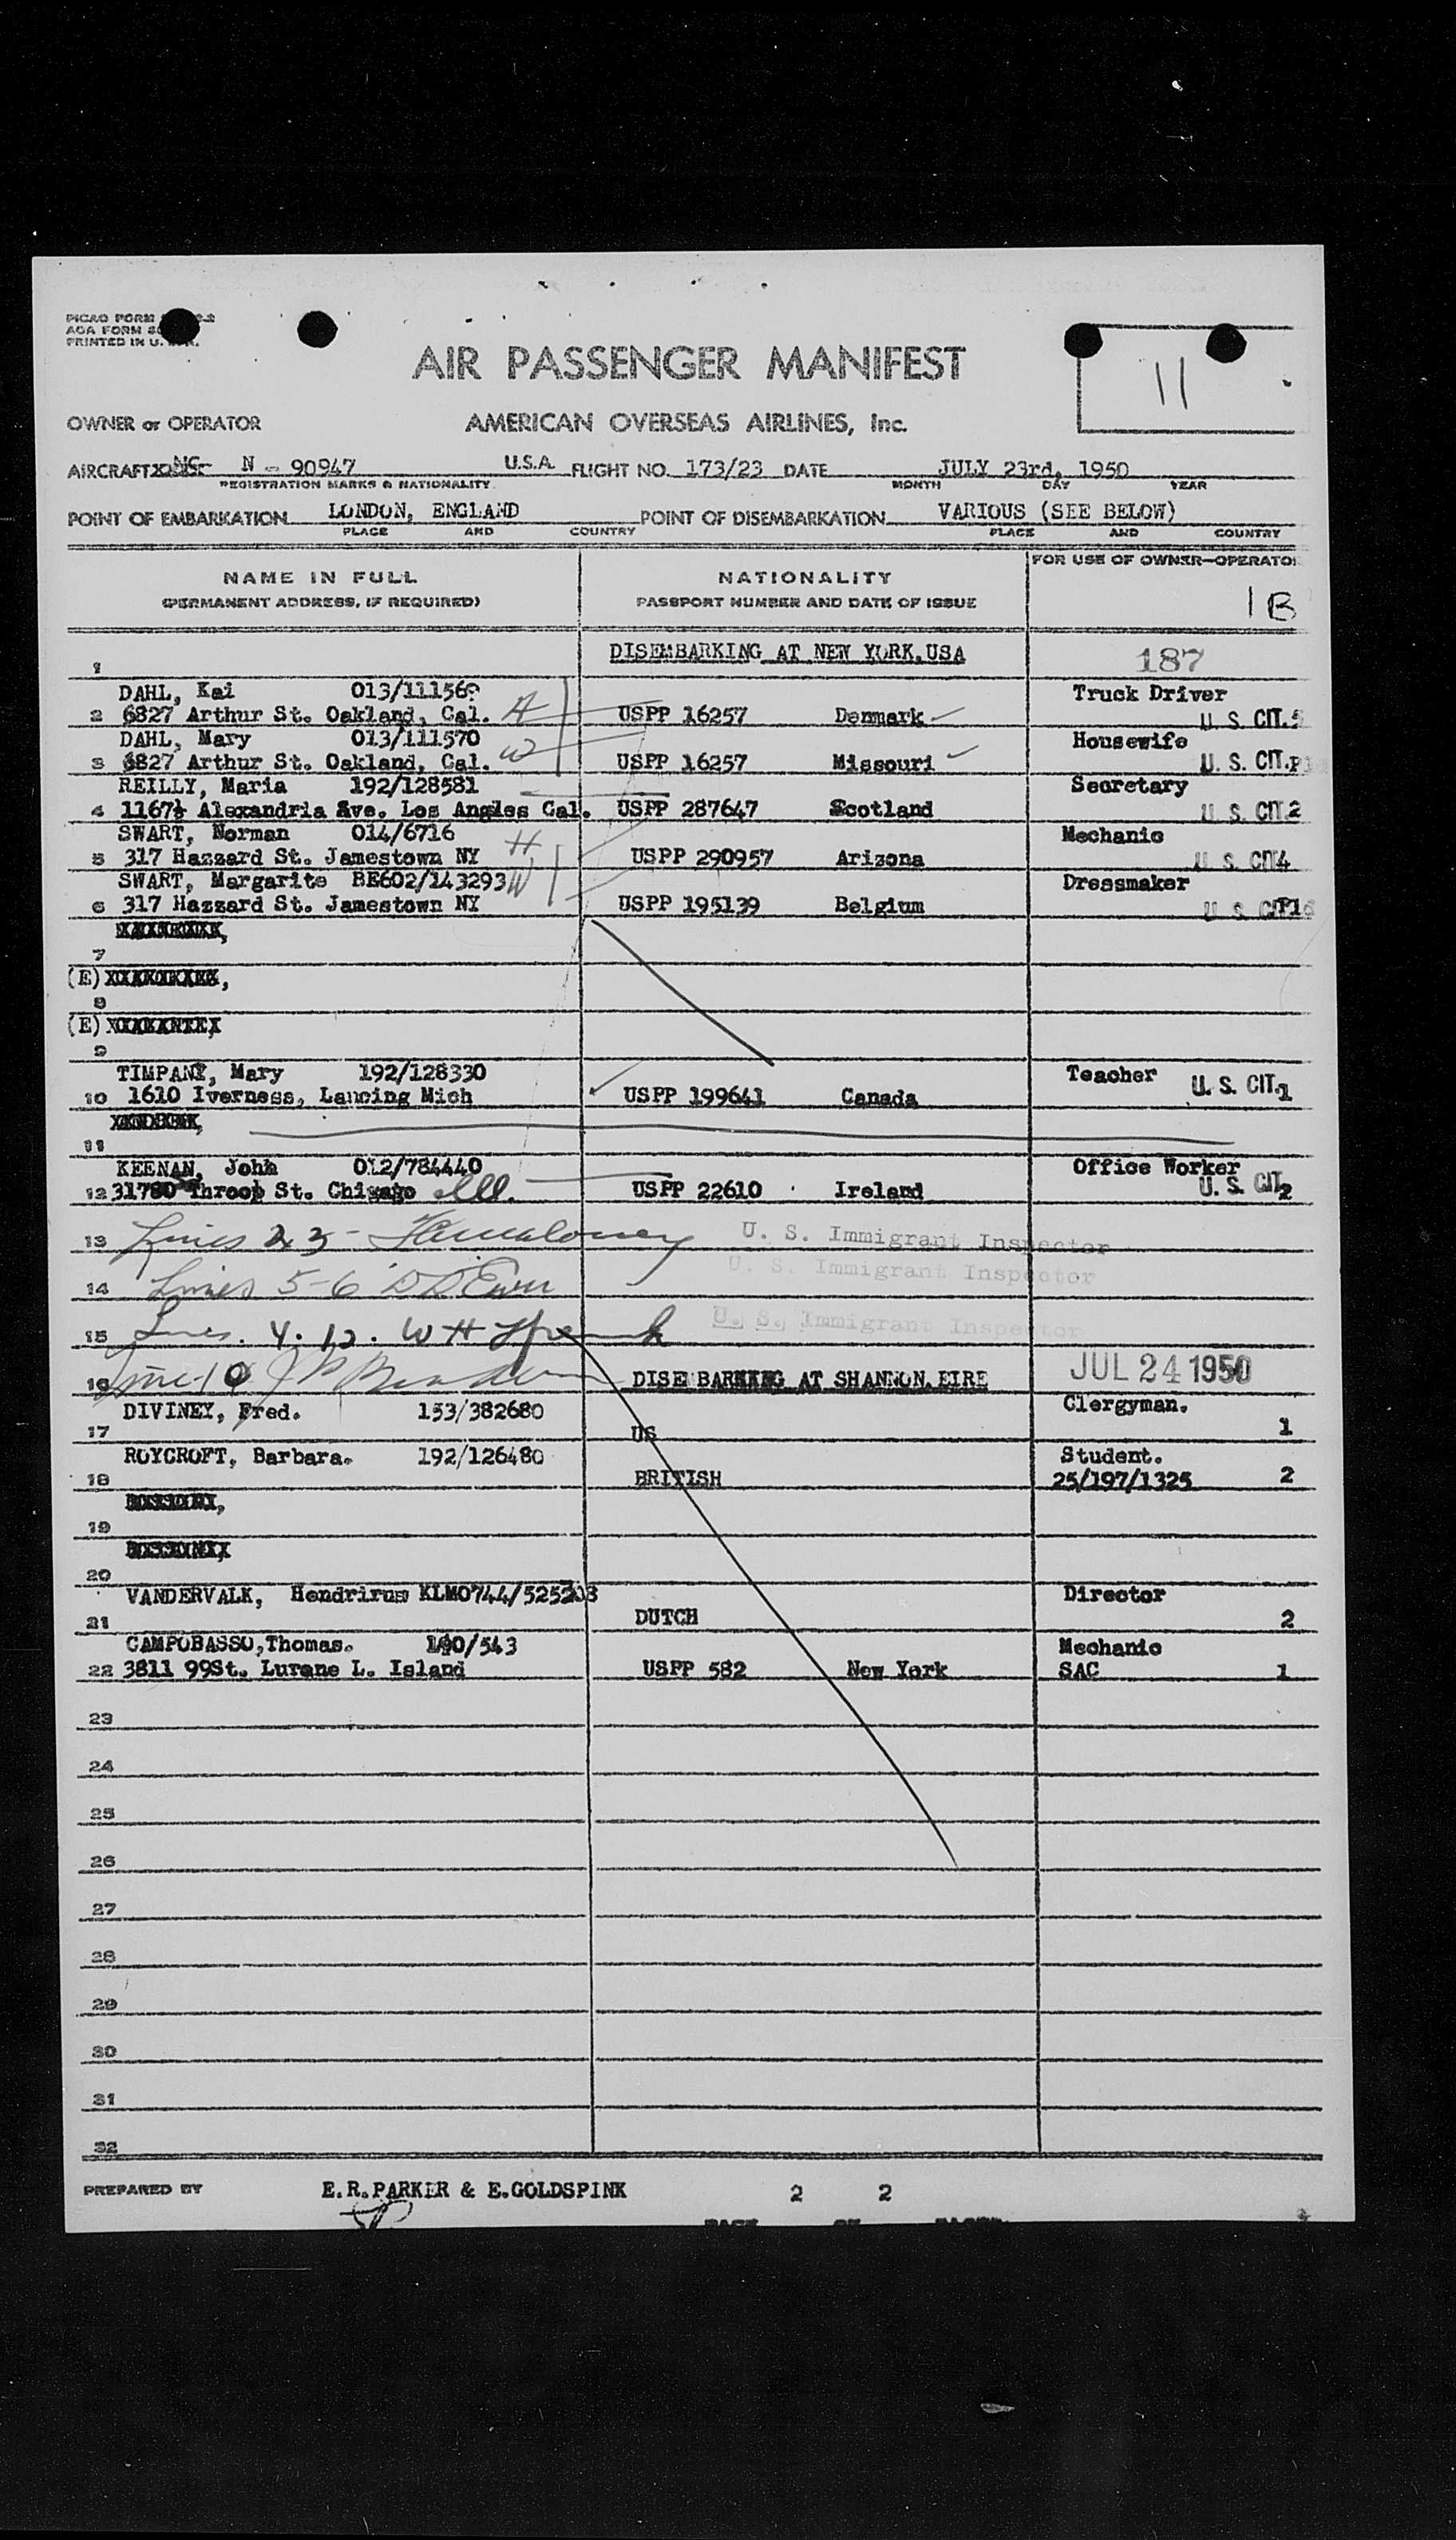 PICAO FORM
AOA FORM
PRINTED IN U.
AIR PASSENGER MANIFEST
11
OWNER or OPERATOR AMERICAN OVERSEAS AIRLINES, Inc.
AIRCRAFT NC N - 90947 U.S.A. FLIGHT NO. 173/23 DATE JULY 23rd, 1950
REGISTRATION MARKS & NATIONALITY MONTH DAY YEAR
POINT OF EMBARKATION LONDON, ENGLAND POINT OF DISEMBARKATION VARIOUS (SEE BELOW)
PLACE AND COUNTRY PLACE AND COUNTRY
NAME IN FULL NATIONALITY FOR USE OF OWNER—OPERATOR
(PERMANENT ADDRESS, IF REQUIRED) PASSPORT NUMBER AND DATE OF ISSUE 1B
1 DISEMBARKING AT NEW YORK, USA 187
DAHL, Kai 013/111569 Truck Driver
2 6827 Arthur St. Oakland, Cal. H USPP 16257 Denmark U. S. CIT. 5
DAHL, Mary 013/111570 Housewife
3 6827 Arthur St. Oakland, Cal. W USPP 16257 Missouri U. S. CIT.
REILLY, Maria 192/128581 Secretary
4 1167½ Alexandria Ave. Los Angles Cal. USPP 287647 Scotland U. S. CIT 2
SWART, Norman 014/6716 Mechanic
5 317 Hazzard St. Jamestown NY H USPP 290957 Arizona U. S. CIT 4
SWART, Margarite BE602/143293 W Dressmaker
6 317 Hazzard St. Jamestown NY USPP 195139 Belgium U. S. CIT
7
(E)
8
(E)
9
TIMPANY, Mary 192/128330 Teacher
10 1610 Iverness, Lancing Mich USPP 199641 Canada U. S. CIT. 1
11
KEENAN, John 012/784440 Office Worker
12 Throop St. Chicago Ill. USPP 22610 Ireland U. S. CIT 2
13 Lines 2 3 - U. S. Immigrant Inspector
14 Lines 5-6 U. S. Immigrant Inspector
15 Lines. 4. 12. W H U. S. Immigrant Inspector
16 Line 10 DISEMBARKING AT SHANNON, EIRE JUL 24 1950
DIVINEY, Fred. 153/382680 Clergyman.
17 US 1
ROYCROFT, Barbara. 192/126480 Student.
18 BRITISH 25/197/1325 2
19
20
VANDERVALK, Hendrirus KLM0744/525203 Director
21 DUTCH 2
CAMPOBASSO, Thomas. 190/543 Mechanic
22 3811 99St. Lurane L. Island USPP 582 New York SAC 1
23
24
25
26
27
28
29
30
31
32
PREPARED BY E.R.PARKER & E.GOLDSPINK 2 2